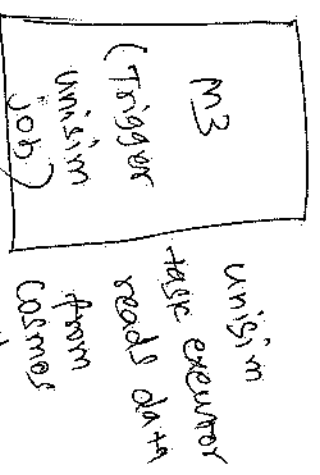 M3
(Trigger
unisim
job)
unisim
task executor
reads data
from
cosmos